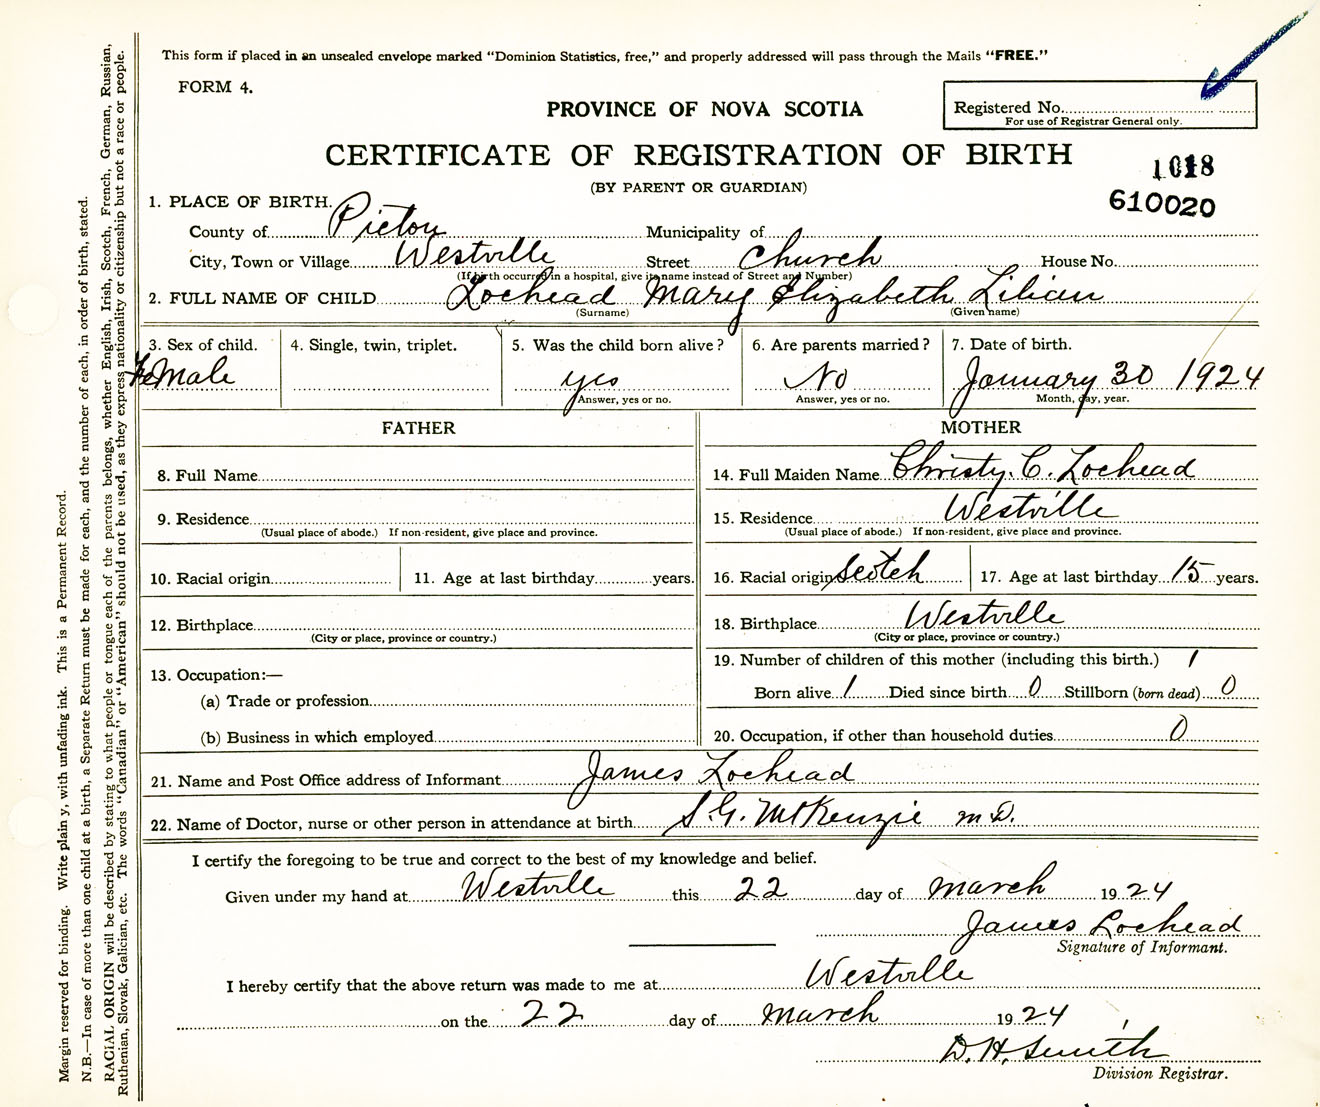 This form if placed in an unsealed envelope marked "Dominion Statistics, free," and properly addressed will pass through the Mails "FREE."
FORM 4.
PROVINCE OF NOVA SCOTIA
Registered No.
For use of Registrar General only.
CERTIFICATE OF REGISTRATION OF BIRTH
1018
(BY PARENT OR GUARDIAN)
610020
1. PLACE OF BIRTH.
County of Pictou Municipality of
City, Town or Village Westville Street Church House No.
(If birth occurred in a hospital, give its name instead of Street and Number)
2. FULL NAME OF CHILD Lochead Mary Elizabeth Lilian
(Surname) (Given name)
3. Sex of child. 4. Single, twin, triplet. 5. Was the child born alive? 6. Are parents married? 7. Date of birth.
FeMale yes No January 30 1924
Answer, yes or no. Answer, yes or no. Month, day, year.
FATHER MOTHER
8. Full Name 14. Full Maiden Name Christy. C. Lochead
9. Residence 15. Residence Westville
(Usual place of abode.) If non-resident, give place and province. (Usual place of abode.) If non-resident, give place and province.
10. Racial origin 11. Age at last birthday years. 16. Racial origin Scotch 17. Age at last birthday 15 years.
12. Birthplace 18. Birthplace Westville
(City or place, province or country.) (City or place, province or country.)
13. Occupation:— 19. Number of children of this mother (including this birth.) 1
(a) Trade or profession Born alive 1 Died since birth 0 Stillborn (born dead) 0
(b) Business in which employed 20. Occupation, if other than household duties 0
21. Name and Post Office address of Informant James Lochead
22. Name of Doctor, nurse or other person in attendance at birth S. G. McKenzie M.D.
I certify the foregoing to be true and correct to the best of my knowledge and belief.
Given under my hand at Westville this 22 day of March 1924
James Lochead
Signature of Informant.
I hereby certify that the above return was made to me at Westville
on the 22 day of March 1924
D. H. Smith
Division Registrar.
Margin reserved for binding. Write plainy, with unfading ink. This is a Permanent Record.
N.B.—In case of more than one child at a birth, a Separate Return must be made for each, and the number of each, in order of birth, stated.
RACIAL ORIGIN will be described by stating to what people or tongue each of the parents belongs, whether English, Irish, Scotch, French, German, Russian,
Ruthenian, Slovak, Galician, etc. The words "Canadian" or "American" should not be used, as they express nationality or citizenship but not a race or people.